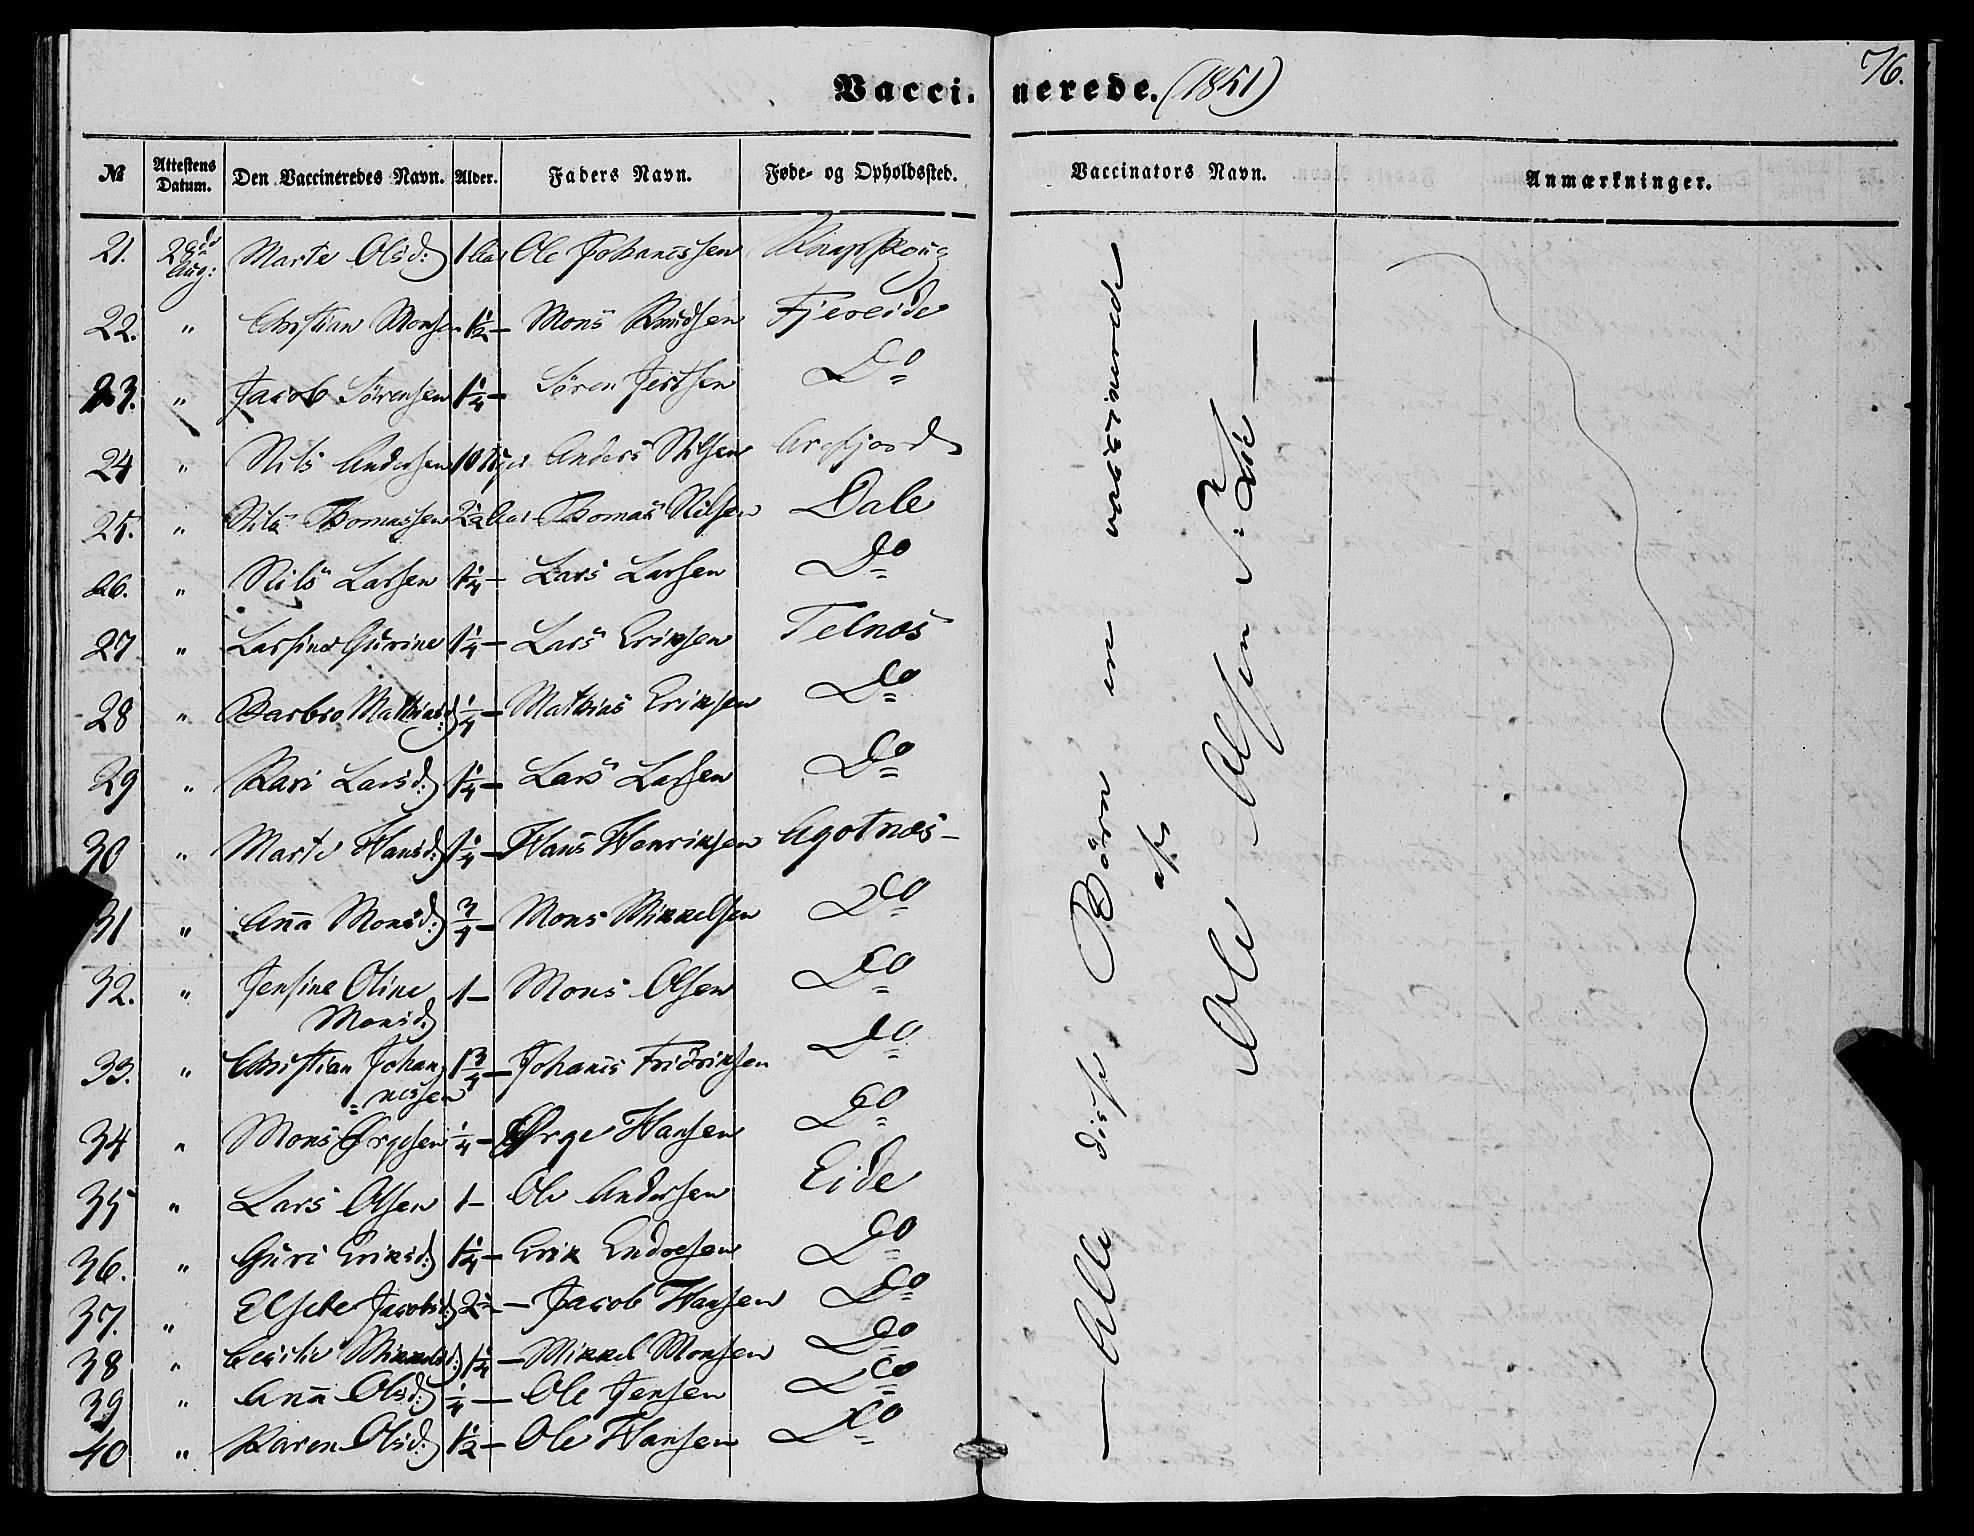 76.
Vaccinerede. (1851)
№ Attestens Datum. Den Vaccineredes Navn. Alder. Faders Navn. Føde- og Opholdssted. Vaccinators Navn. Anmærkninger.
21. Aug: Marte Olsd: 1 Aar Ole Johanessen Knapskoug
22. " Christian Monsen 1 1/2 — Mons Knudsen Fjereide
23. " Jacob Sörensen 1 1/4 — Sören Do
24 " Nils Andersen 10 Anders Nilsen
25. " Nils Thomassen Aar Thomas Nilsen Dale
26. " Nils Larsen 1 1/4 — Lars Larsen Do
27 " Larsine Gurine 1 1/4 — Lars Eriksen Telnæs
28 " Barbro Mathiasd: 1/4 — Mathias Eriksen Do
29 " Kari Larsd: 1 1/4 — Lars Larsen Do
30 " Marte Hansd: 1 1/4 — Hans Henriksen Agotnæs —
31 " Anna Monsd: 3/4 — Mons Mikkelsen Do
32. " Jensine Oline 1 — Mons Olsen Do
Monsd:
33. " Christian Johan= 1 3/4 — Johanes Fridriksen Do
= nessen
34 " Mons Ørgesen 1/4 — Ørge Hansen Do
35 " Lars Olsen 1 — Ole Andersen Eide
36. " Guri Eriksd: 1 1/4 — Erik Endresen Do
37. " Elsebe Jacobsd: — Jacob Hansen Do
38 " Cecilie Mikkelsd: 1 1/4 — Mikkel Monsen Do
39 " Anna Olsd: 1/4 — Ole Jensen Do
40 " Karen Olsd: 1 1/2 — Ole Hansen Do
— Alle disse Börn ere vaccinerede
af
Ole Alsen